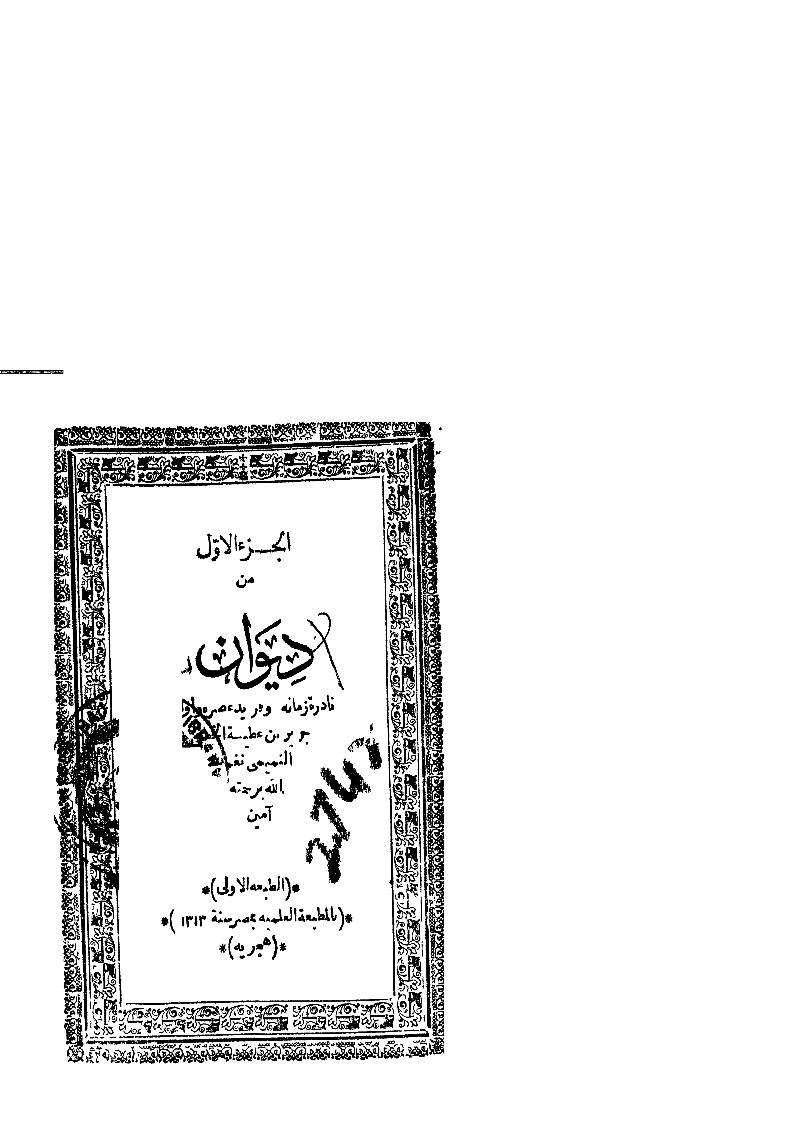 الجزء الاوّل
من
ديوان
نادرة زمانه وفريد عصره
جرير بن عطية
التميمى تغمده
الله برحمته
آمين
*(الطبعه الاولى)*
*(بالمطبعة العلميه بمصر سنة ١٣١٣)*
*(هجريه)*